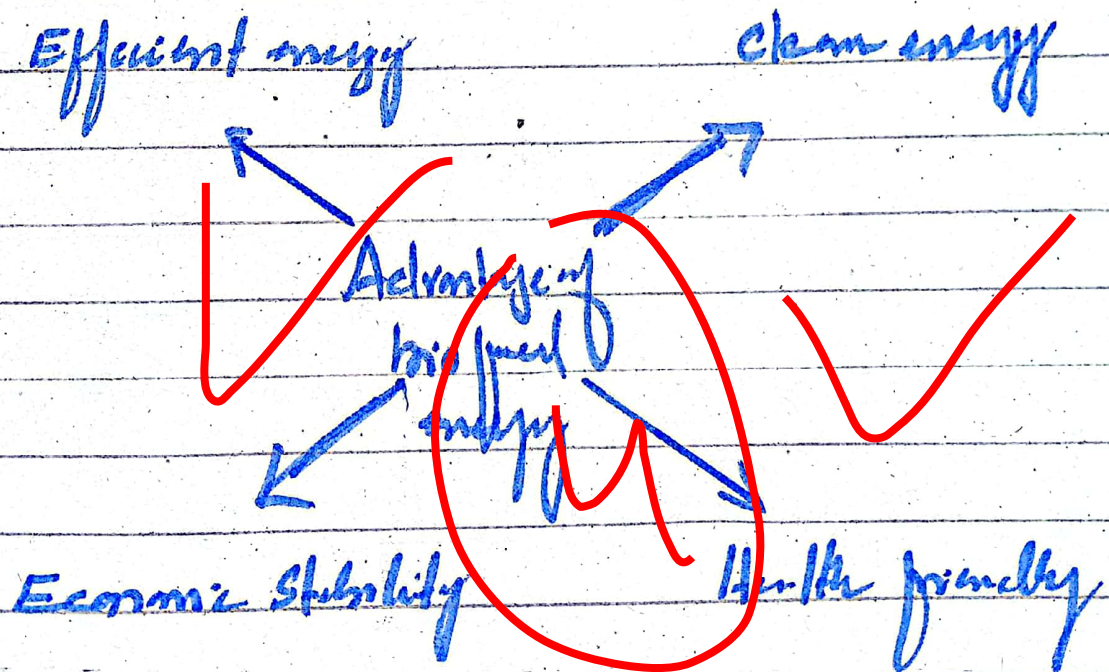 Efficient energy
Clean energy
Advantage of
bio fuel
energy
Economic Stability
Health friendly